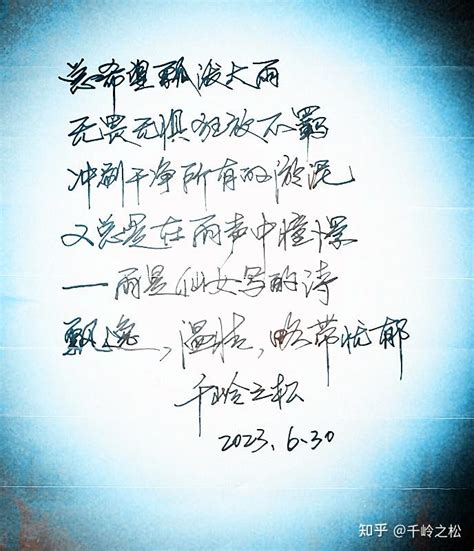 总希望瓢泼大雨
无畏无惧狂放不羁
冲刷干净所有的淤泥
又总是在雨声中憧憬
一雨是仙女写的诗
飘逸,温情,略带忧郁
千岭之松
2023.6.30
知乎 @千岭之松